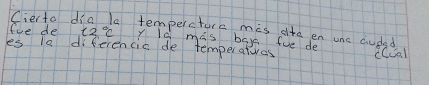 Cierto día la temperatura más alta en una ciudad
fue de 12°C y la más baja fue de ¿Cuál
es la diferencia de temperaturas